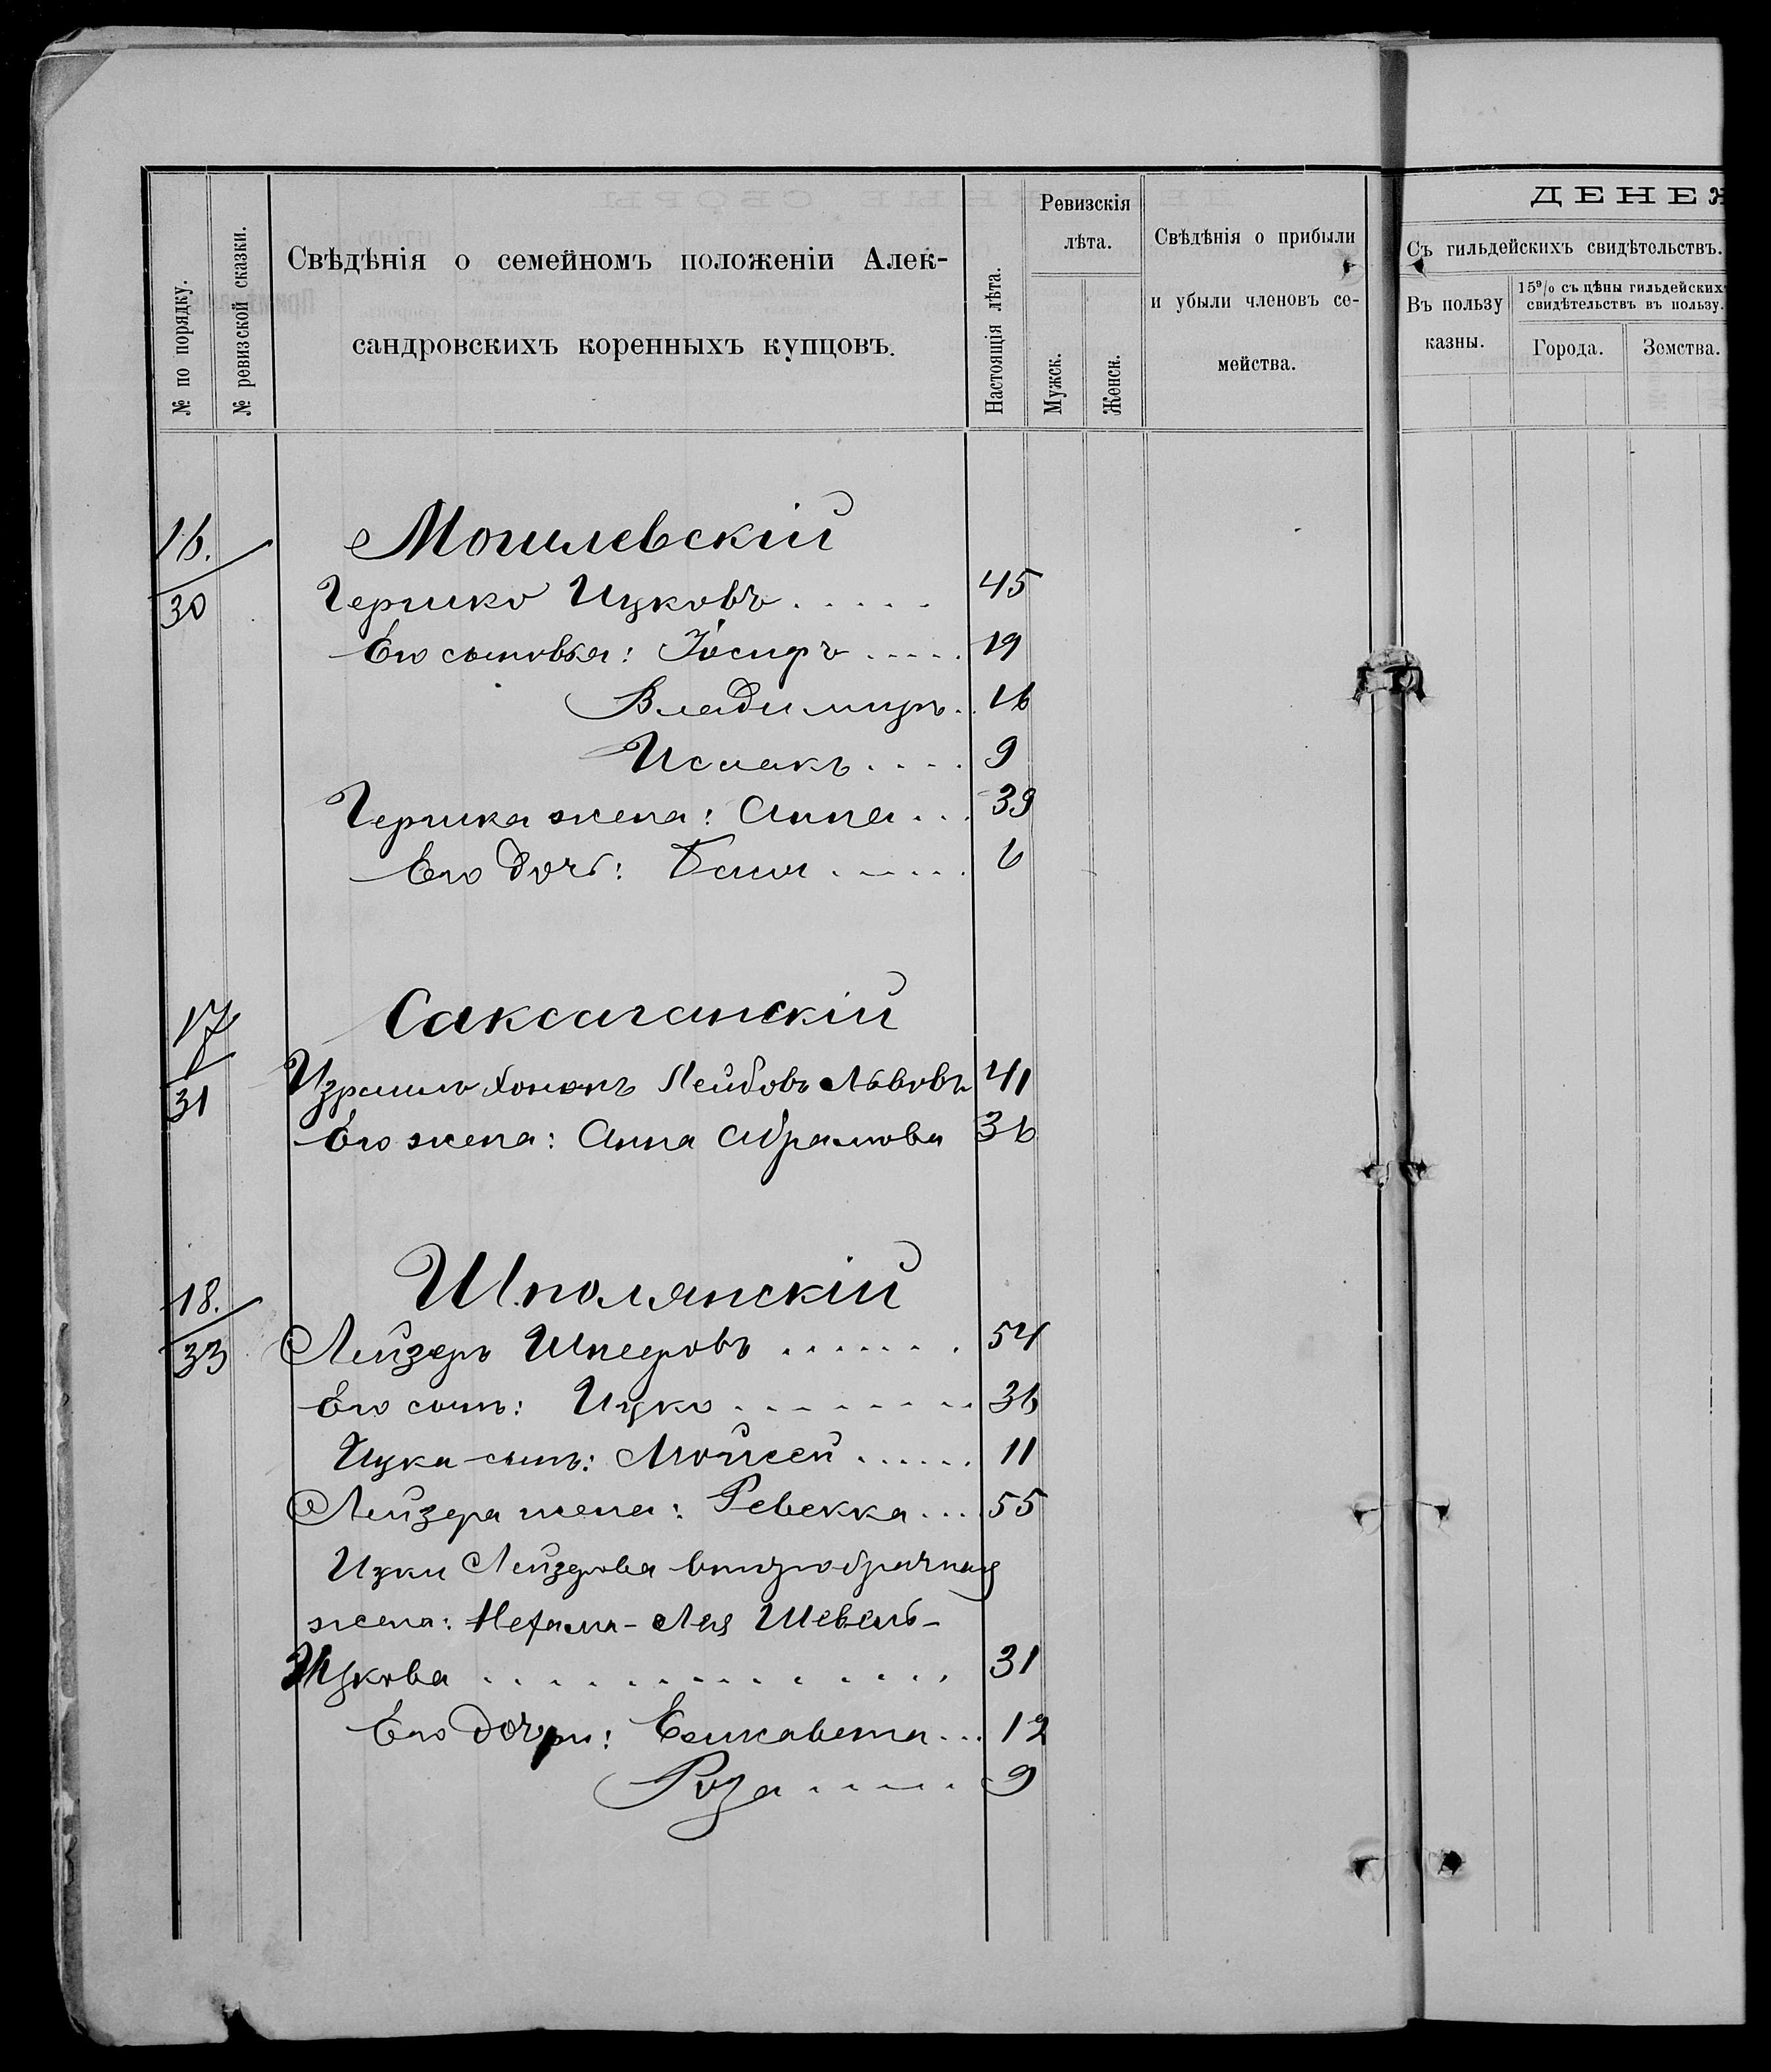 № по порядку.
№ ревизской сказки.
Свѣдѣнія о семейномъ положеніи Алек-
сандровскихъ коренныхъ купцовъ.
Настоящія лѣта.
Ревизскія
лѣта.
Мужск.
Женск.
Свѣдѣнія о прибыли
и убыли членовъ се-
мейства.
ДЕНЕЖ
Съ гильдейскихъ свидѣтельствъ.
Въ пользу
казны.
15% съ цѣны гильдейскихъ
свидѣтельствъ въ пользу.
Города.
Земства.
16. Могилевскій
30 Гершко Ицковъ ..... 45
Его сыновья: Іосифъ ..... 19
Владимиръ .. 16
Исаакъ .... 9
Гершка жена: Анна ... 39
Его дочь: Бася ...... 6
17 Саксаганскій
31 Израиль Хононъ Лейбовъ Львовъ 41
Его жена: Анна Абрамова 36
18. Шполянскій
33 Лейзеръ Шнееровъ ....... 54
Его сынъ: Ицко ......... 36
Ицка сынъ: Мойсей ...... 11
Лейзера жена: Ревекка .... 55
Ицки Лейзерова второбрачная
жена: Нехама-Лея Шевель-
Ицкова ............... 31
Его дочери: Елисавета ... 12
Роза ...... 9